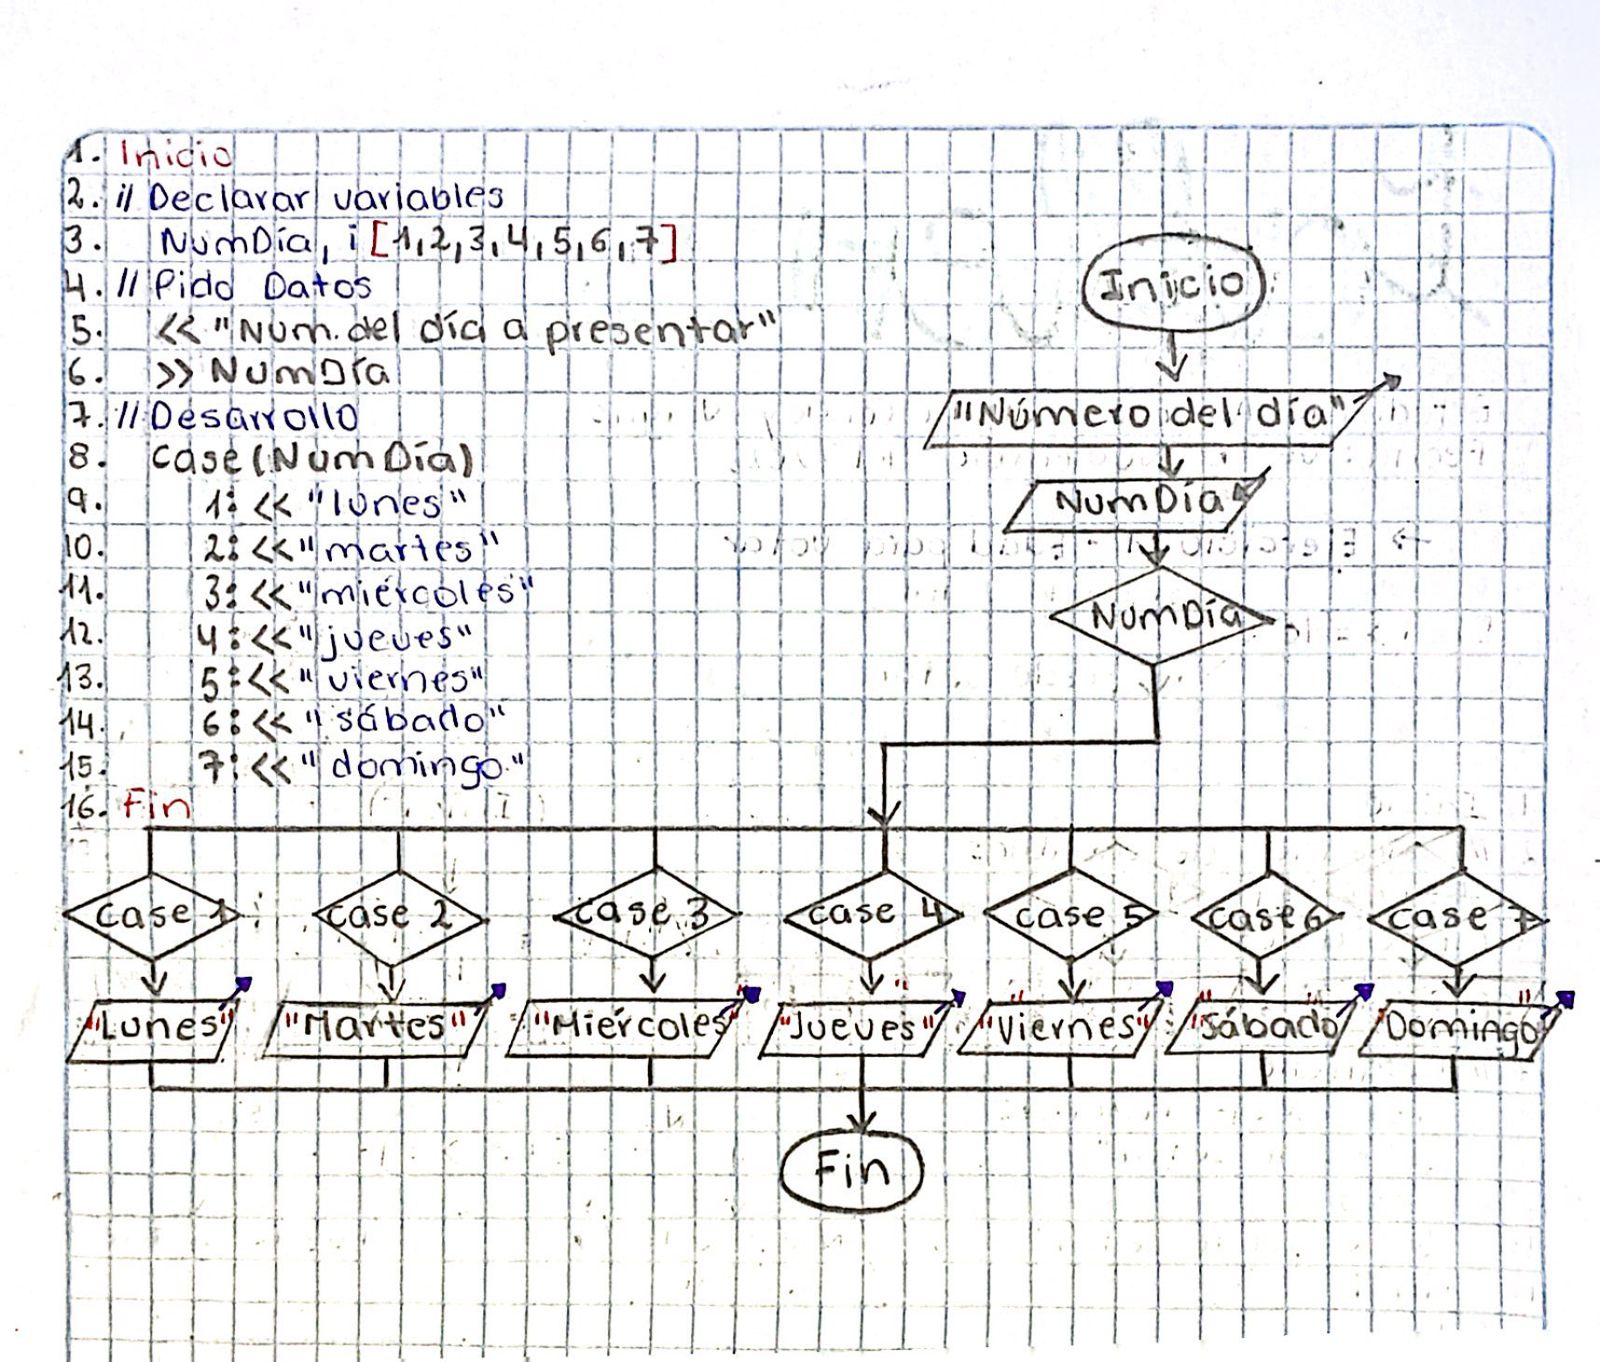 1. Inicio
2. // Declarar variables
3. NumDía, i [1,2,3,4,5,6,7]
4. // Pido Datos
5. << "Num. del día a presentar"
6. >> NumDía
7. // Desarrollo
8. case(NumDía)
9. 1: << "lunes"
10. 2: << "martes"
11. 3: << "miércoles"
12. 4: << "jueves"
13. 5: << "viernes"
14. 6: << "sábado"
15. 7: << "domingo"
16. Fin
Inicio
"Número del día"
NumDía
NumDía
case 1 case 2 case 3 case 4 case 5 case 6 case 7
"Lunes" "Martes" "Miércoles" "Jueves" "Viernes" "Sábado" "Domingo"
Fin